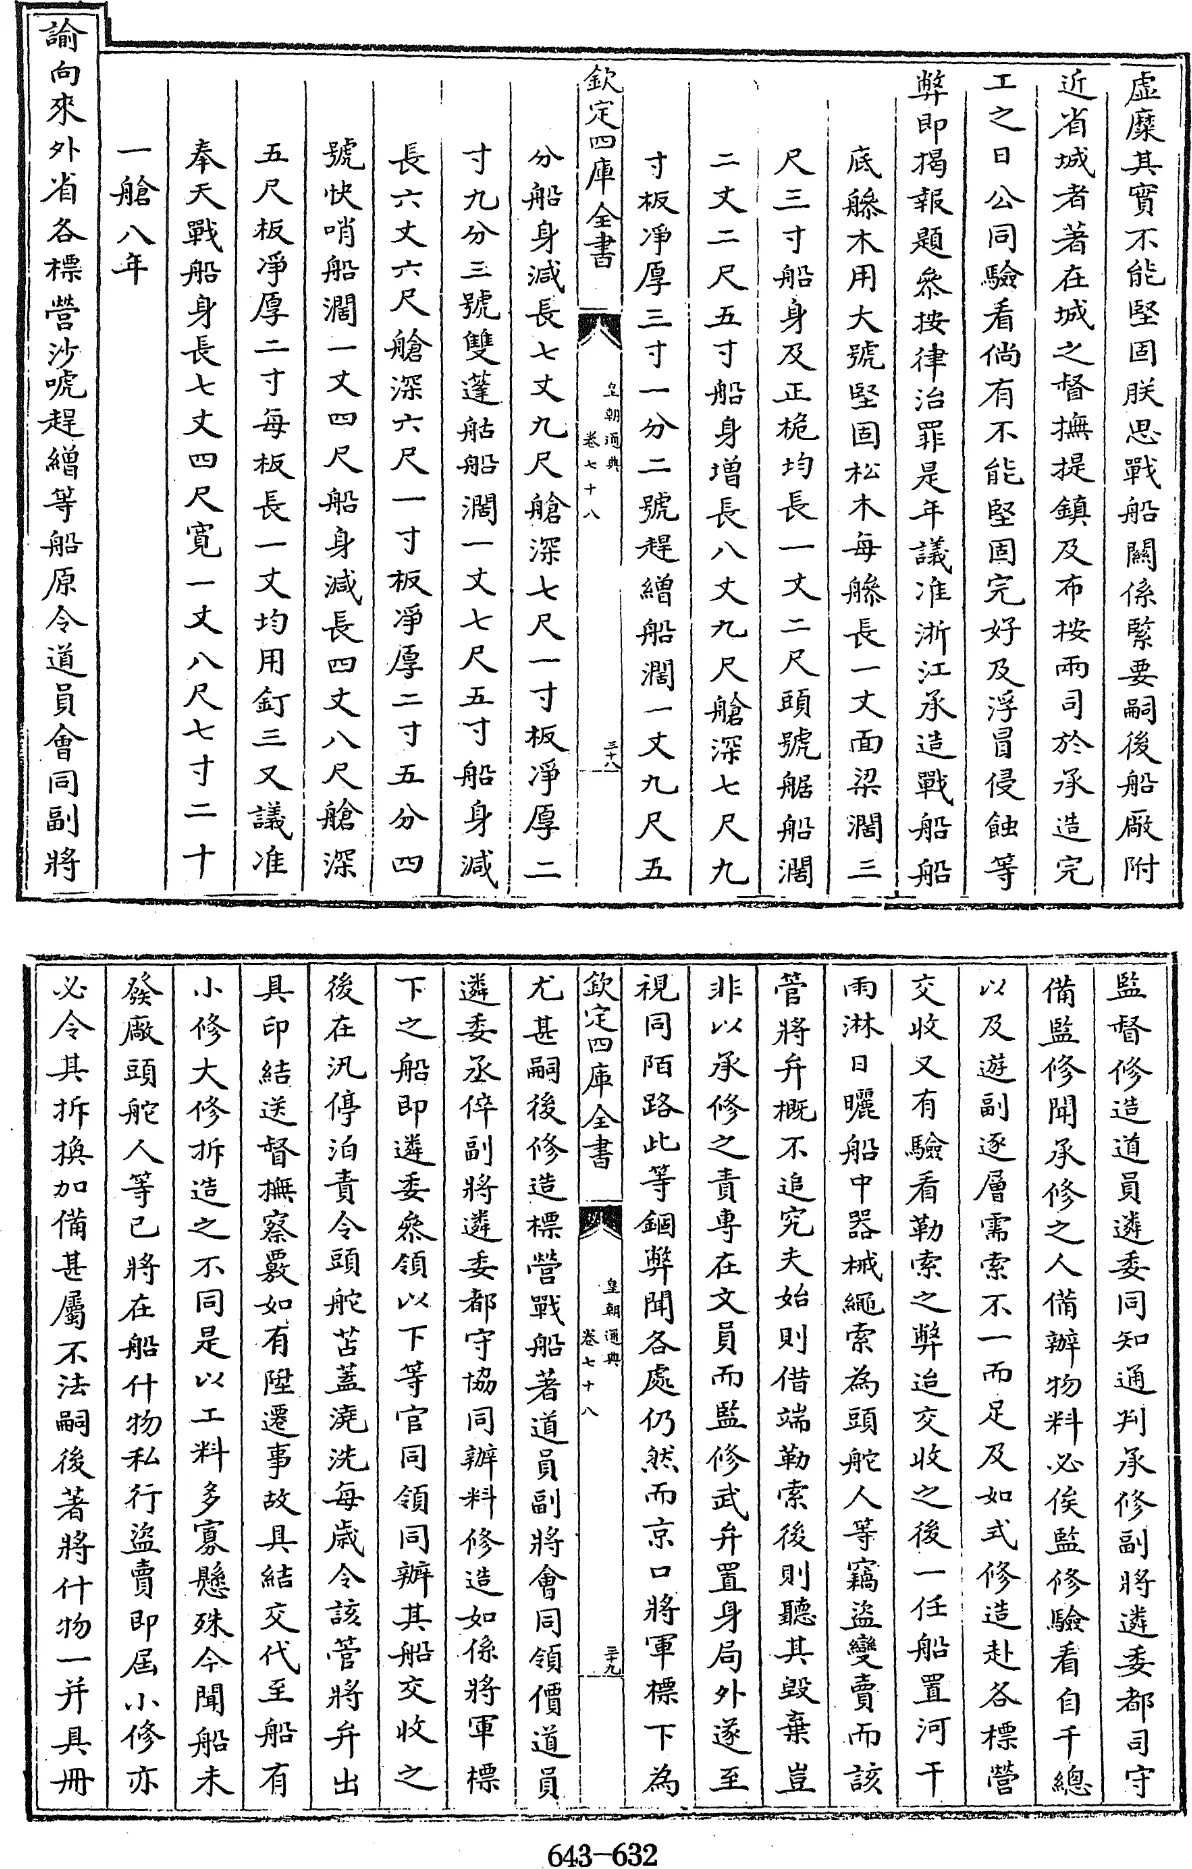 虛糜其實不能堅固朕思戰船關係緊要嗣後船廠附
近省城者著在城之督撫提鎮及布按兩司於承造完
工之日公同驗看倘有不能堅固完好及浮冒侵蝕等
弊即揭報題參按律治罪是年議准浙江承造戰船船
底艌木用大號堅固松木每艌長一丈面梁濶三
尺三寸船身及正桅均長一丈二尺頭號䑨船濶
二丈二尺五寸船身增長八丈九尺艙深七尺九
寸板凈厚三寸一分二號趕繒船濶一丈九尺五
欽定四庫全書
皇朝通典
卷七十八
三十八
分船身減長七丈九尺艙深七尺一寸板凈厚二
寸九分三號雙蓬䑩船濶一丈七尺五寸船身減
長六丈六尺艙深六尺一寸板凈厚二寸五分四
號快哨船濶一丈四尺船身減長四丈八尺艙深
五尺板凈厚二寸每板長一丈均用釘三又議准
奉天戰船身長七丈四尺寬一丈八尺七寸二十
一艙八年
諭向來外省各標營沙唬趕繒等船原令道員會同副將
監督修造道員遴委同知通判承修副將遴委都司守
備監修聞承修之人備辦物料必俟監修驗看自千總
以及遊副逐層需索不一而足及如式修造赴各標營
交收又有驗看勒索之弊迨交收之後一任船置河干
雨淋日曬船中器械繩索為頭舵人等竊盜變賣而該
管將弁概不追究夫始則借端勒索後則聽其毀棄豈
非以承修之責專在文員而監修武弁置身局外遂至
視同陌路此等錮弊聞各處仍然而京口將軍標下為
欽定四庫全書
皇朝通典
卷七十八
三十九
尤甚嗣後修造標營戰船著道員副將會同領價道員
遴委丞倅副將遴委都守協同辦料修造如係將軍標
下之船即遴委叅領以下等官同領同辦其船交收之
後在汛停泊責令頭舵苫蓋澆洗每歲令該管將弁出
具印結送督撫察覈如有陞遷事故具結交代至船有
小修大修拆造之不同是以工料多寡懸殊今聞船未
發廠頭舵人等已將在船什物私行盜賣即屆小修亦
必令其拆換加備甚屬不法嗣後著將什物一并具冊
643-632